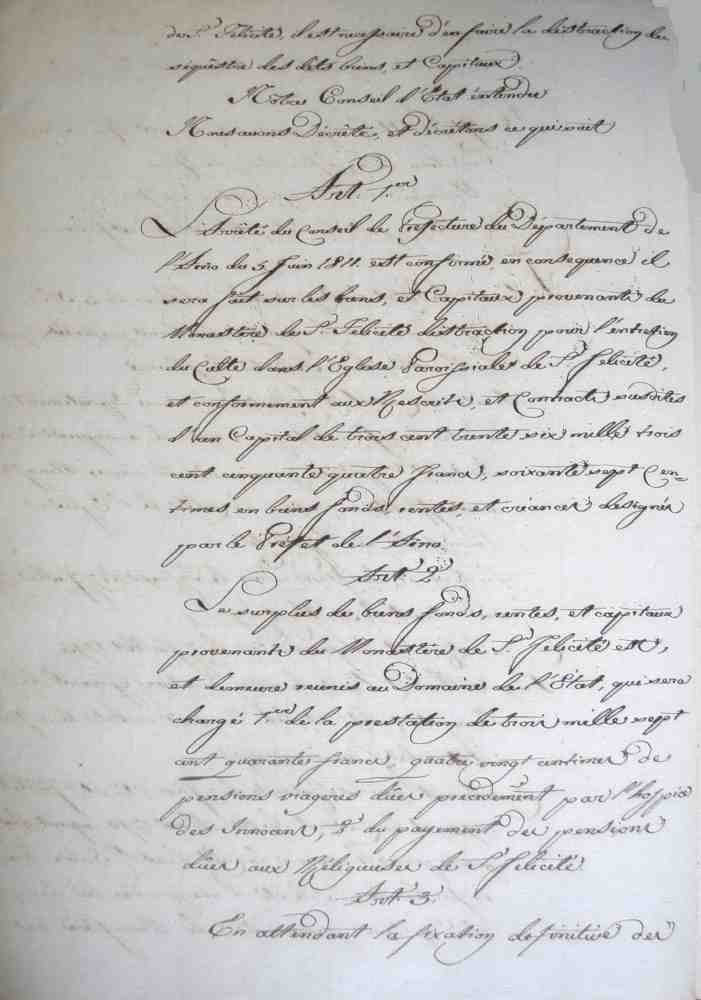 de S.te Felicité, il est necessaire d'en faire la distraction du
siquèstre des dits biens, et Capitaux
Notre Conseil d'Etat éntendu
Nous avons Décrèté, et décrétons ce qui suit
Art. 1.er
L'Arrêté du Conseil de Préfecture du Département de
l'Arno du 5 Juin 1811. est confirmé, en consequence il
sera fait sur les biens, et Capitaux provenants du
Monastère de S.te Felicité distraction pour l'entretien
du Culte dans l'Eglise Paroissiale de S.te Felicité,
et conformement aux Rescrits, et Contracts susdites
d'un Capital de trois cent trente six mille trois
cent cinquante quatre francs, soixante sept Cen=
times en biens fonds, rentes, et créances designés
par le Préfet de l'Arno.
Art. 2.
Le surplus de biens fonds, rentes, et capitaux
provenants du Monastère de S.te Felicité est,
et demeure reunis au Domaine de l'État, qui sera
chargé 1.er de la prestation de trois mille sept
cent quarante francs, quatre vingt centimes de
pensions viageres dües precedement par l'hospice
des Innocens, 2.° du payement des pensions
dües aux Réligieuses de S.te Felicité.
Art. 3.
En attendant la fixation definitive des